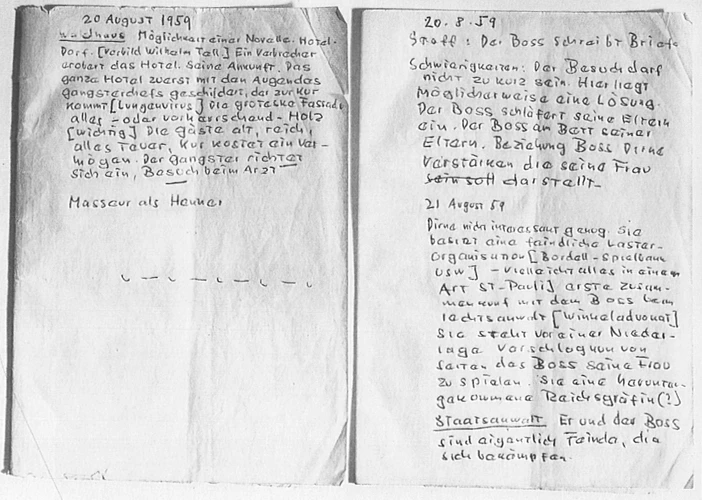 20 August 1959
Waldhaus Möglichkeit einer Novelle. Hotel-
Dorf. [Vorbild Wilhelm Tell.] Ein Verbrecher
erobert das Hotel. Seine Ankunft. Das
ganze Hotel zuerst mit den Augen des
gangsterchefs geschildert, der zur Kur
kommt [Lungenvirus] Die groteske Fassade
alles - oder vorherrschend - Holz
[wichtig] Die Gäste alt, reich,
alles teuer. Kur kostet ein Ver-
mögen. Der gangster richtet
sich ein, Besuch beim Arzt
Masseur als Henker
20. 8. 59
Stoff: Der Boss schreibt Briefe
Schwierigkeiten: Der Besuch darf
nicht zu kurz sein. Hier liegt
Möglicherweise eine Lösung.
Der Boss schläfert seine Eltern
ein. Der Boss am Bett seiner
Eltern. Beziehung Boss Dirne
verstärken die seine Frau
sein soll darstellt.
21 August 59
Dirne nicht interessant genug. Sie
besitzt eine feindliche Laster-
organisation [Bordell - Spielbank
usw] - vielleicht alles in einem
Art St-Pauli] erste Zusam-
menkunft mit dem Boss beim
rechtsanwalt [Winkeladvokat]
Sie steht vor einer Nieder-
lage Vorschlag nun von
seiten des Boss seine Frau
zu spielen. Sie eine herunter-
gekommene Reichsgräfin (?)
Staatsanwalt. Er und der Boss
sind eigentlich Feinde, die
sich bekämpfen.